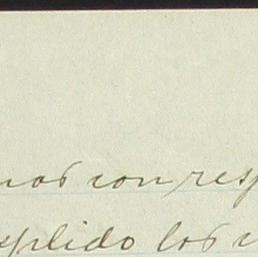 nos con resp
splido los v